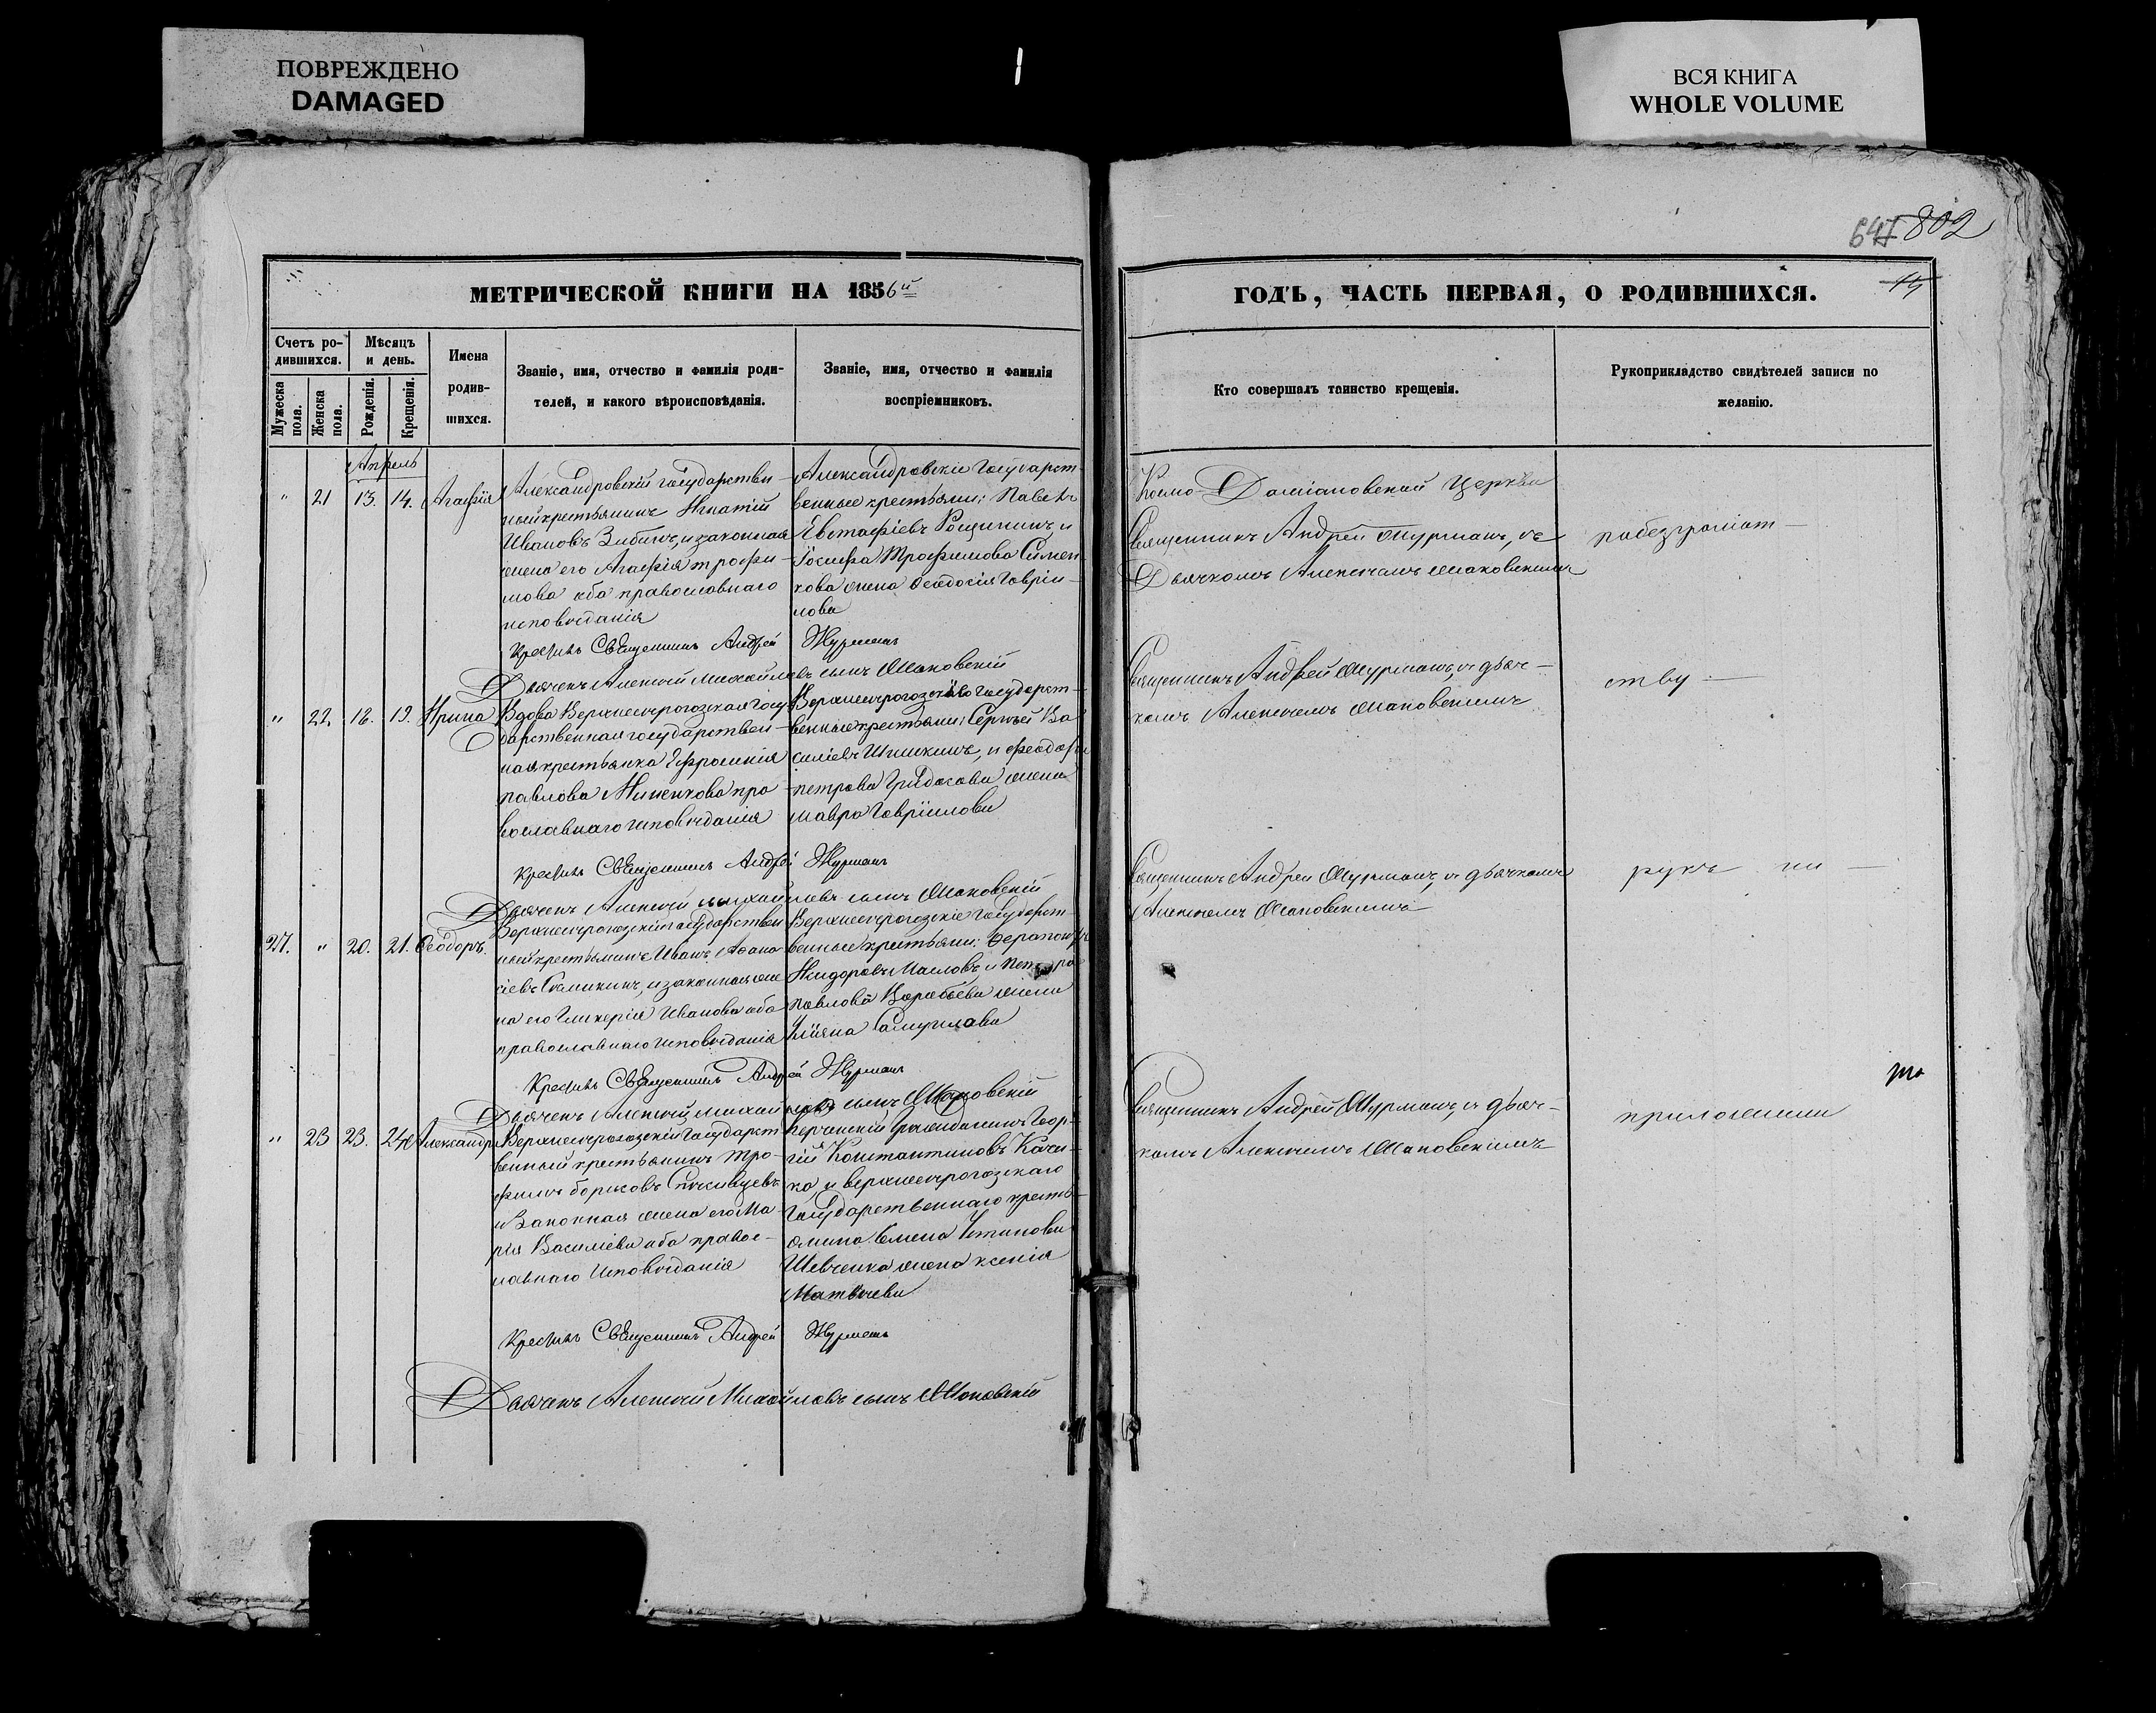 ПОВРЕЖДЕНО
DAMAGED
ВСЯ КНИГА
WHOLE VOLUME
802
МЕТРИЧЕСКОЙ КНИГИ НА 1856й
ГОДЪ, ЧАСТЬ ПЕРВАЯ, О РОДИВШИХСЯ.
Счетъ ро-
дившихся.
Мужеска пола.
Женска пола.
Мѣсяцъ
и день.
Рожденія.
Крещенія.
Имена
родив-
шихся.
Званіе, имя, отчество и фамилія роди-
телей, и какого вѣроисповѣданія.
Званіе, имя, отчество и фамилія
воспріемниковъ.
Кто совершалъ таинство крещенія.
Рукоприкладство свидѣтелей записи по
желанію.
Апрель
" 21 13. 14. Агафія
Александровскій государствен
ный крестьянинъ Игнатій
Ивановъ Зибинъ, и законная
жена его Агафія трофи-
мова оба православнаго
исповѣданія
Александровскіе Государст-
венные крестьяни: Павелъ
Евстафіевъ Рощининъ, и
Іосифа Трофимова Симен
кова жена Ѳеодосія Гавріи-
лова
Космо-Даміановской Церкви
Священникъ Андрей Журманъ, съ
Дьячкомъ Алексеемъ Маковскимъ
по безграмот-
Крестилъ Священникъ Андрей Журманъ
Дьячекъ Алексѣй Михайловъ сынъ Маковскій
" 22. 18. 19. Ирина
Вдова Верхнесерогозская Госу
дарственная государствен-
ная крестьянка Ефросинія
павлова Миненкова пра
вославнаго исповѣданія
Верхнесерогозского Государст-
венные крестьяни: Сергѣй Ва
силіевъ Шишкинъ, и Феодора
петрова Гридасова жена
мавра Гавріилова
Священникъ Андрей Журманъ, съ дьяч-
комъ Алексеемъ Маковскимъ
ству
Крестилъ Священникъ Андрей Журманъ
Дьячекъ Алексѣй михайловъ сынъ Маковскій
27. " 20. 21. Ѳеодоръ.
Верхнесерогозскій государствен
ный крестьянинъ Иванъ Афана
сіевъ Семикинъ, и законная же
на его Гликерія Иванова оба
православнаго исповѣданія
Верхнесерогозскіе Государст
венные крестьяни: Ферапонтъ
Исидоровъ Масловъ, и Петра
павлова Воробьева жена
Уліяна Самуилова
Священникъ Андрей Журманъ, съ дьячкомъ
Алексеемъ Маковскимъ
рукъ ни
Крестилъ Священникъ Андрей Журманъ
Дьячекъ Алексѣй михайловъ сынъ Маковскій
" 23 23. 24 Александра
Верхнесерогозскій Государст
венный крестьянинъ Тро-
фимъ борисовъ
и Законная жена его Ма-
рія Василіева оба правос-
лавнаго Исповѣданія
Гражданинъ Геор-
гій Константиновъ Качи-
ка, и верхнесерогозскаго
Государственнаго кресть-
Устинова
Шевченка жена ксенія
Матвѣева
Священникъ Андрей Журманъ, съ дьяч-
комъ Алексеемъ Маковскимъ
приложили
Крестилъ Священникъ Андрей Журманъ
Дьячекъ Алексѣй Михайловъ сынъ Маковскій